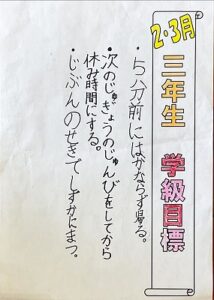 2・3月
三年生 学級目標
・5分前にはかならず帰る。
・次のじゅぎょうのじゅんびをしてから
休み時間にする。
・じぶんのせきでしずかにまつ。